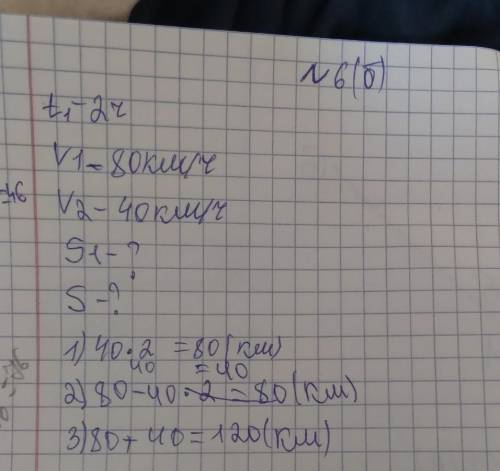 N 6(б)
t₁ - 2ч
V1 - 80км/ч
V2 - 40км/ч
S1 - ?
S - ?
1) 40 · 2 = 80 (км)
40 = 40
2) 80 - 40 · 2 = 80 (км)
3) 80 + 40 = 120 (км)